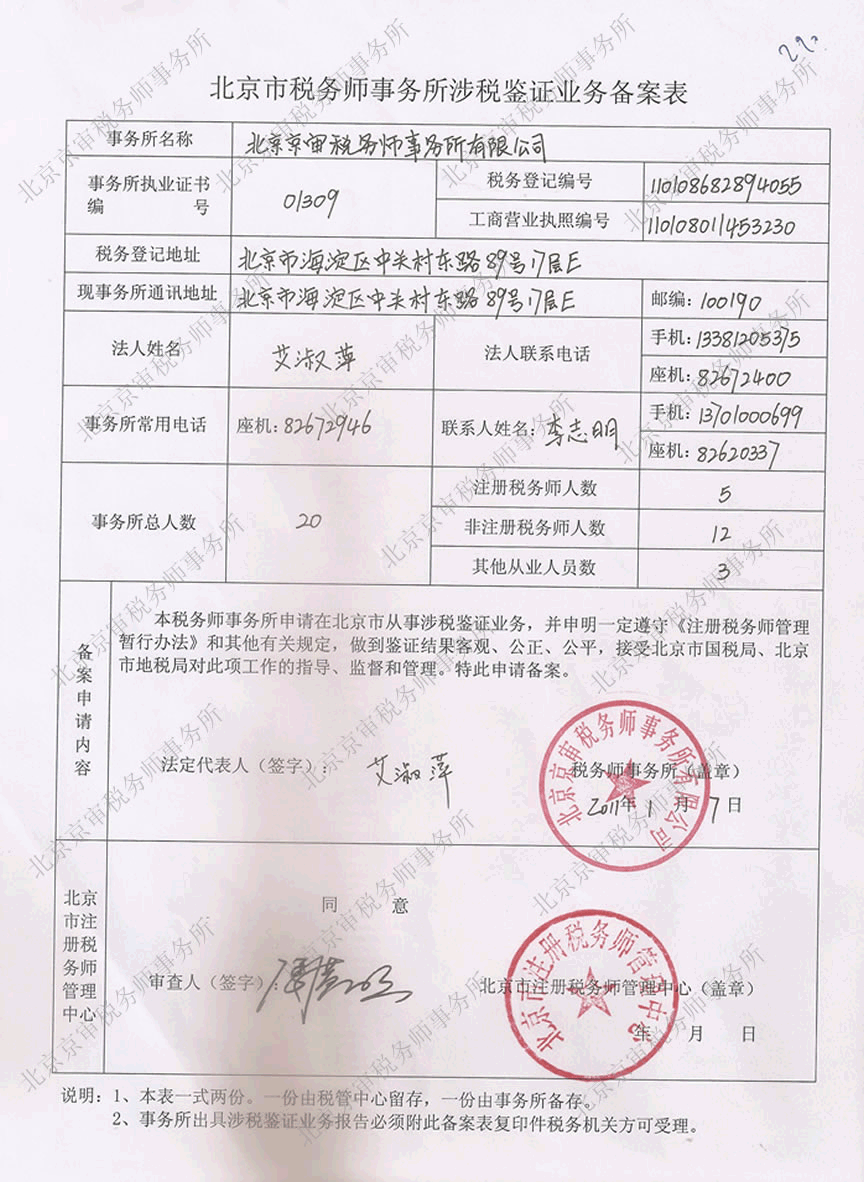 北京市税务师事务所涉税鉴证业务备案表
事务所名称 北京京审税务师事务所有限公司
事务所执业证书编号 01309 税务登记编号 110108682894055
工商营业执照编号 110108011453230
税务登记地址 北京市海淀区中关村东路89号17层E
现事务所通讯地址 北京市海淀区中关村东路89号17层E 邮编:100190
法人姓名 艾淑萍 法人联系电话 手机:13381205375
座机:82672400
事务所常用电话 座机:82672946 联系人姓名:李志明 手机:13701000699
座机:82620337
事务所总人数 20 注册税务师人数 5
非注册税务师人数 12
其他从业人员数 3
备案申请内容
本税务师事务所申请在北京市从事涉税鉴证业务，并申明一定遵守《注册税务师管理
暂行办法》和其他有关规定，做到鉴证结果客观、公正、公平，接受北京市国税局、北京
市地税局对此项工作的指导、监督和管理。特此申请备案。
法定代表人（签字）: 艾淑萍 税务师事务所（盖章）
2011年1月7日
北京京审税务师事务所有限公司
北京市注册税务师管理中心
同 意
审查人（签字）: 北京市注册税务师管理中心（盖章）
年 月 日
北京市注册税务师管理中心
说明：1、本表一式两份。一份由税管中心留存，一份由事务所备存。
2、事务所出具涉税鉴证业务报告必须附此备案表复印件税务机关方可受理。
北京京审税务师事务所